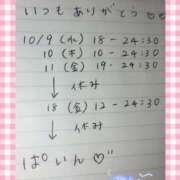 いつもありがとう
10/9 (水) 18-24:30
10 (木) 10-24:30
11 (金) 19-24:30
↓
休み
18 (金) 12-24:30
↓
休み
ぱいん♡